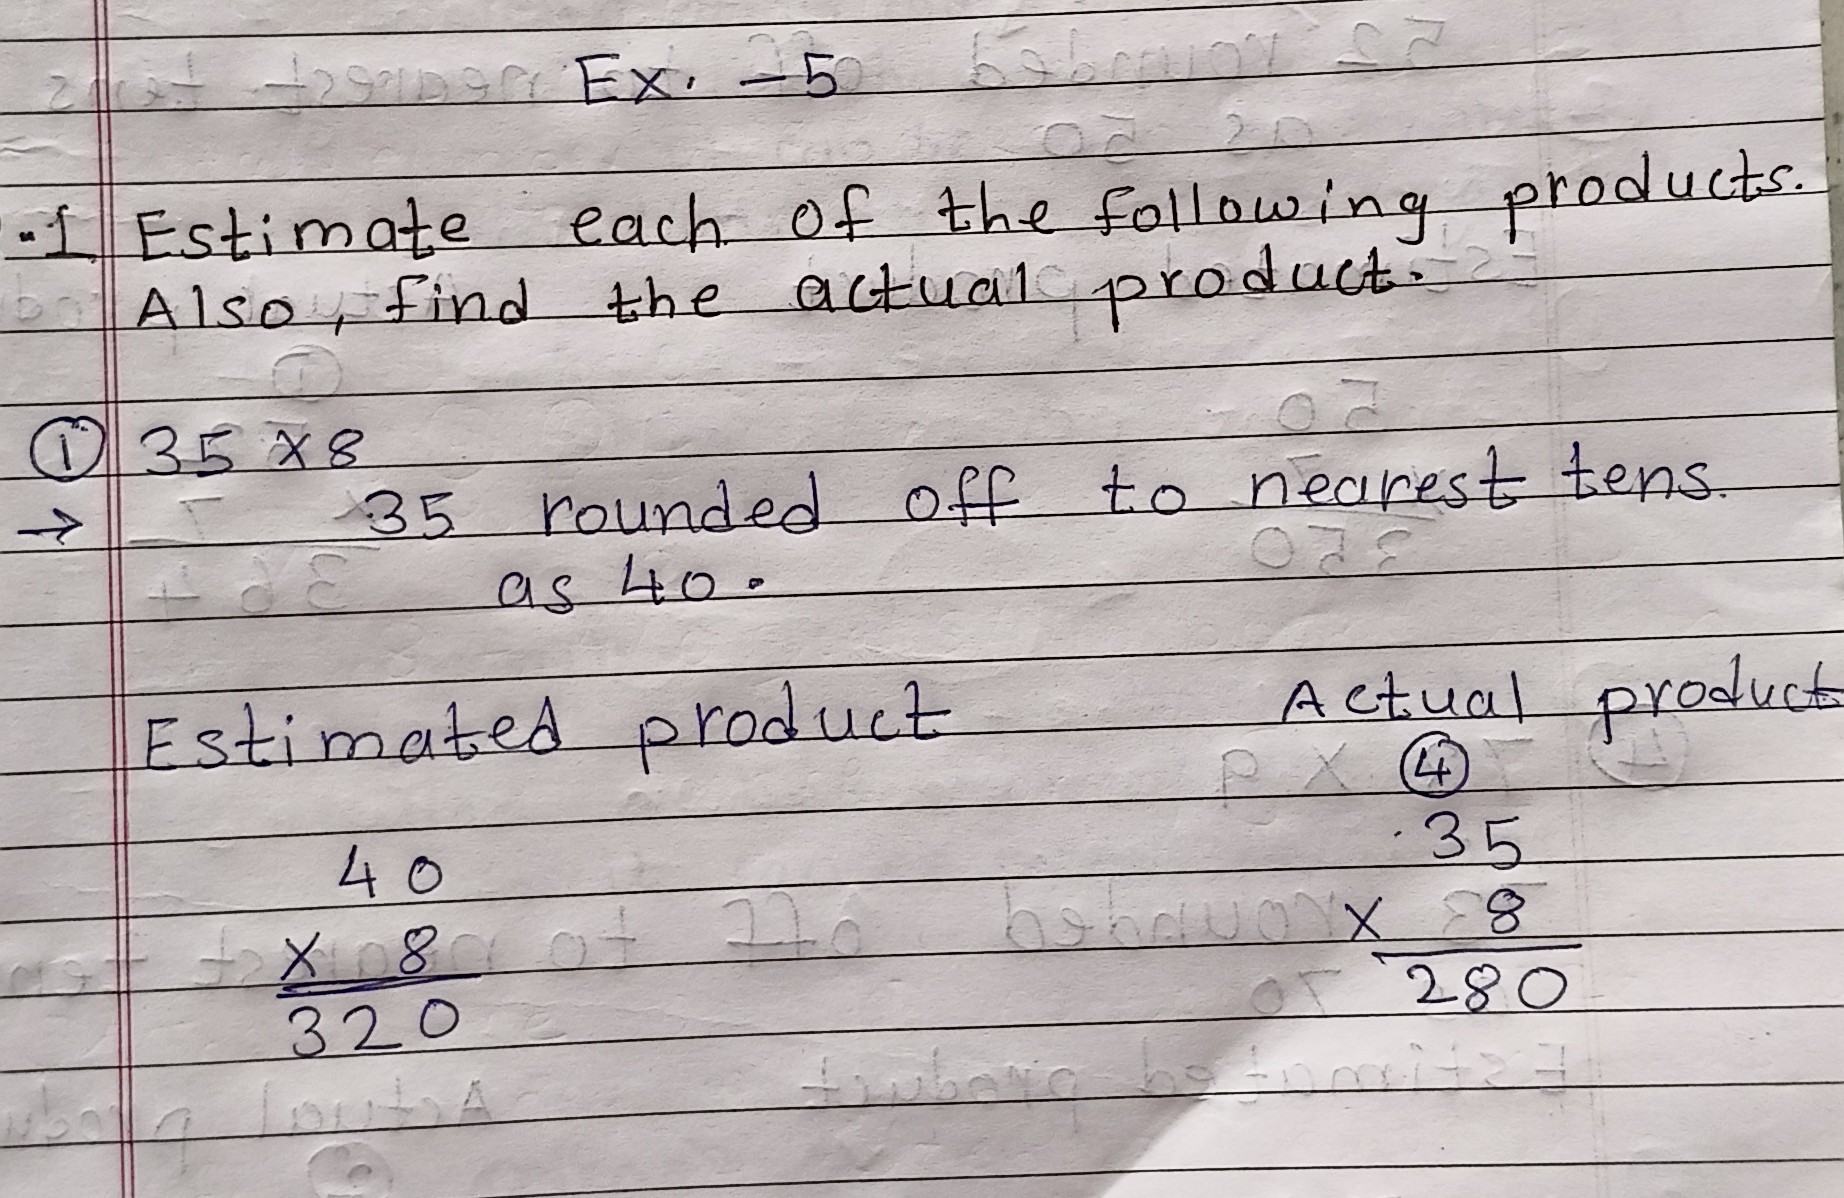 Ex. -5
.1 Estimate each of the following products.
Also, find the actual product.
① 35 × 8
→ 35 rounded off to nearest tens.
as 40.
Estimated product Actual product
④
40 35
× 8 × 8
320 280